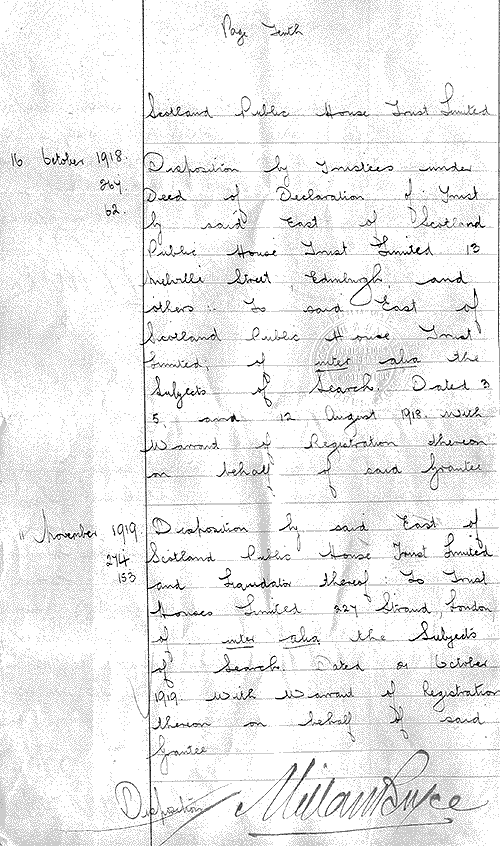 Page Tenth
Scotland Public House Trust Limited
16 October 1918.
267
62.
Disposition by Trustees under
Deed of Declaration of Trust
by said East of Scotland
Public House Trust Limited 13
Melville Street, Edinburgh and
others :. To said East of
Scotland Public House Trust
Limited, of inter alia the
Subjects of Search. Dated 3
5, and 12 August 1918. With
Warrant of Registration thereon
on behalf of said Grantee
11 November 1919
274
153
Disposition by said East of
Scotland Public House Trust Limited
and Liquidator thereof : To Trust
Houses Limited 227 Strand, London,
of inter alia the Subjects
of Search. Dated October
1919. With Warrant of Registration
thereon on behalf of said
Grantee
Disposition